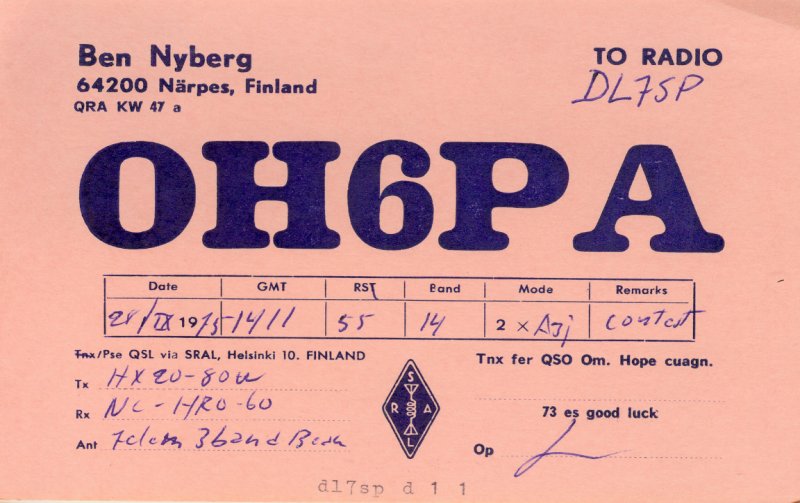 Ben Nyberg
64200 Närpes, Finland
QRA KW 47 a
TO RADIO
DL7SP
OH6PA
Date GMT RST Band Mode Remarks
28/IX 1975 1411 55 14 2 x A3j contest
Tnx/Pse QSL via SRAL, Helsinki 10. FINLAND
Tnx fer QSO Om. Hope cuagn.
Tx HX20-80w
Rx NC-HRO-60
Ant 7elem 3band Beam
SRAL
73 es good luck
Op
dl7sp d 1 1